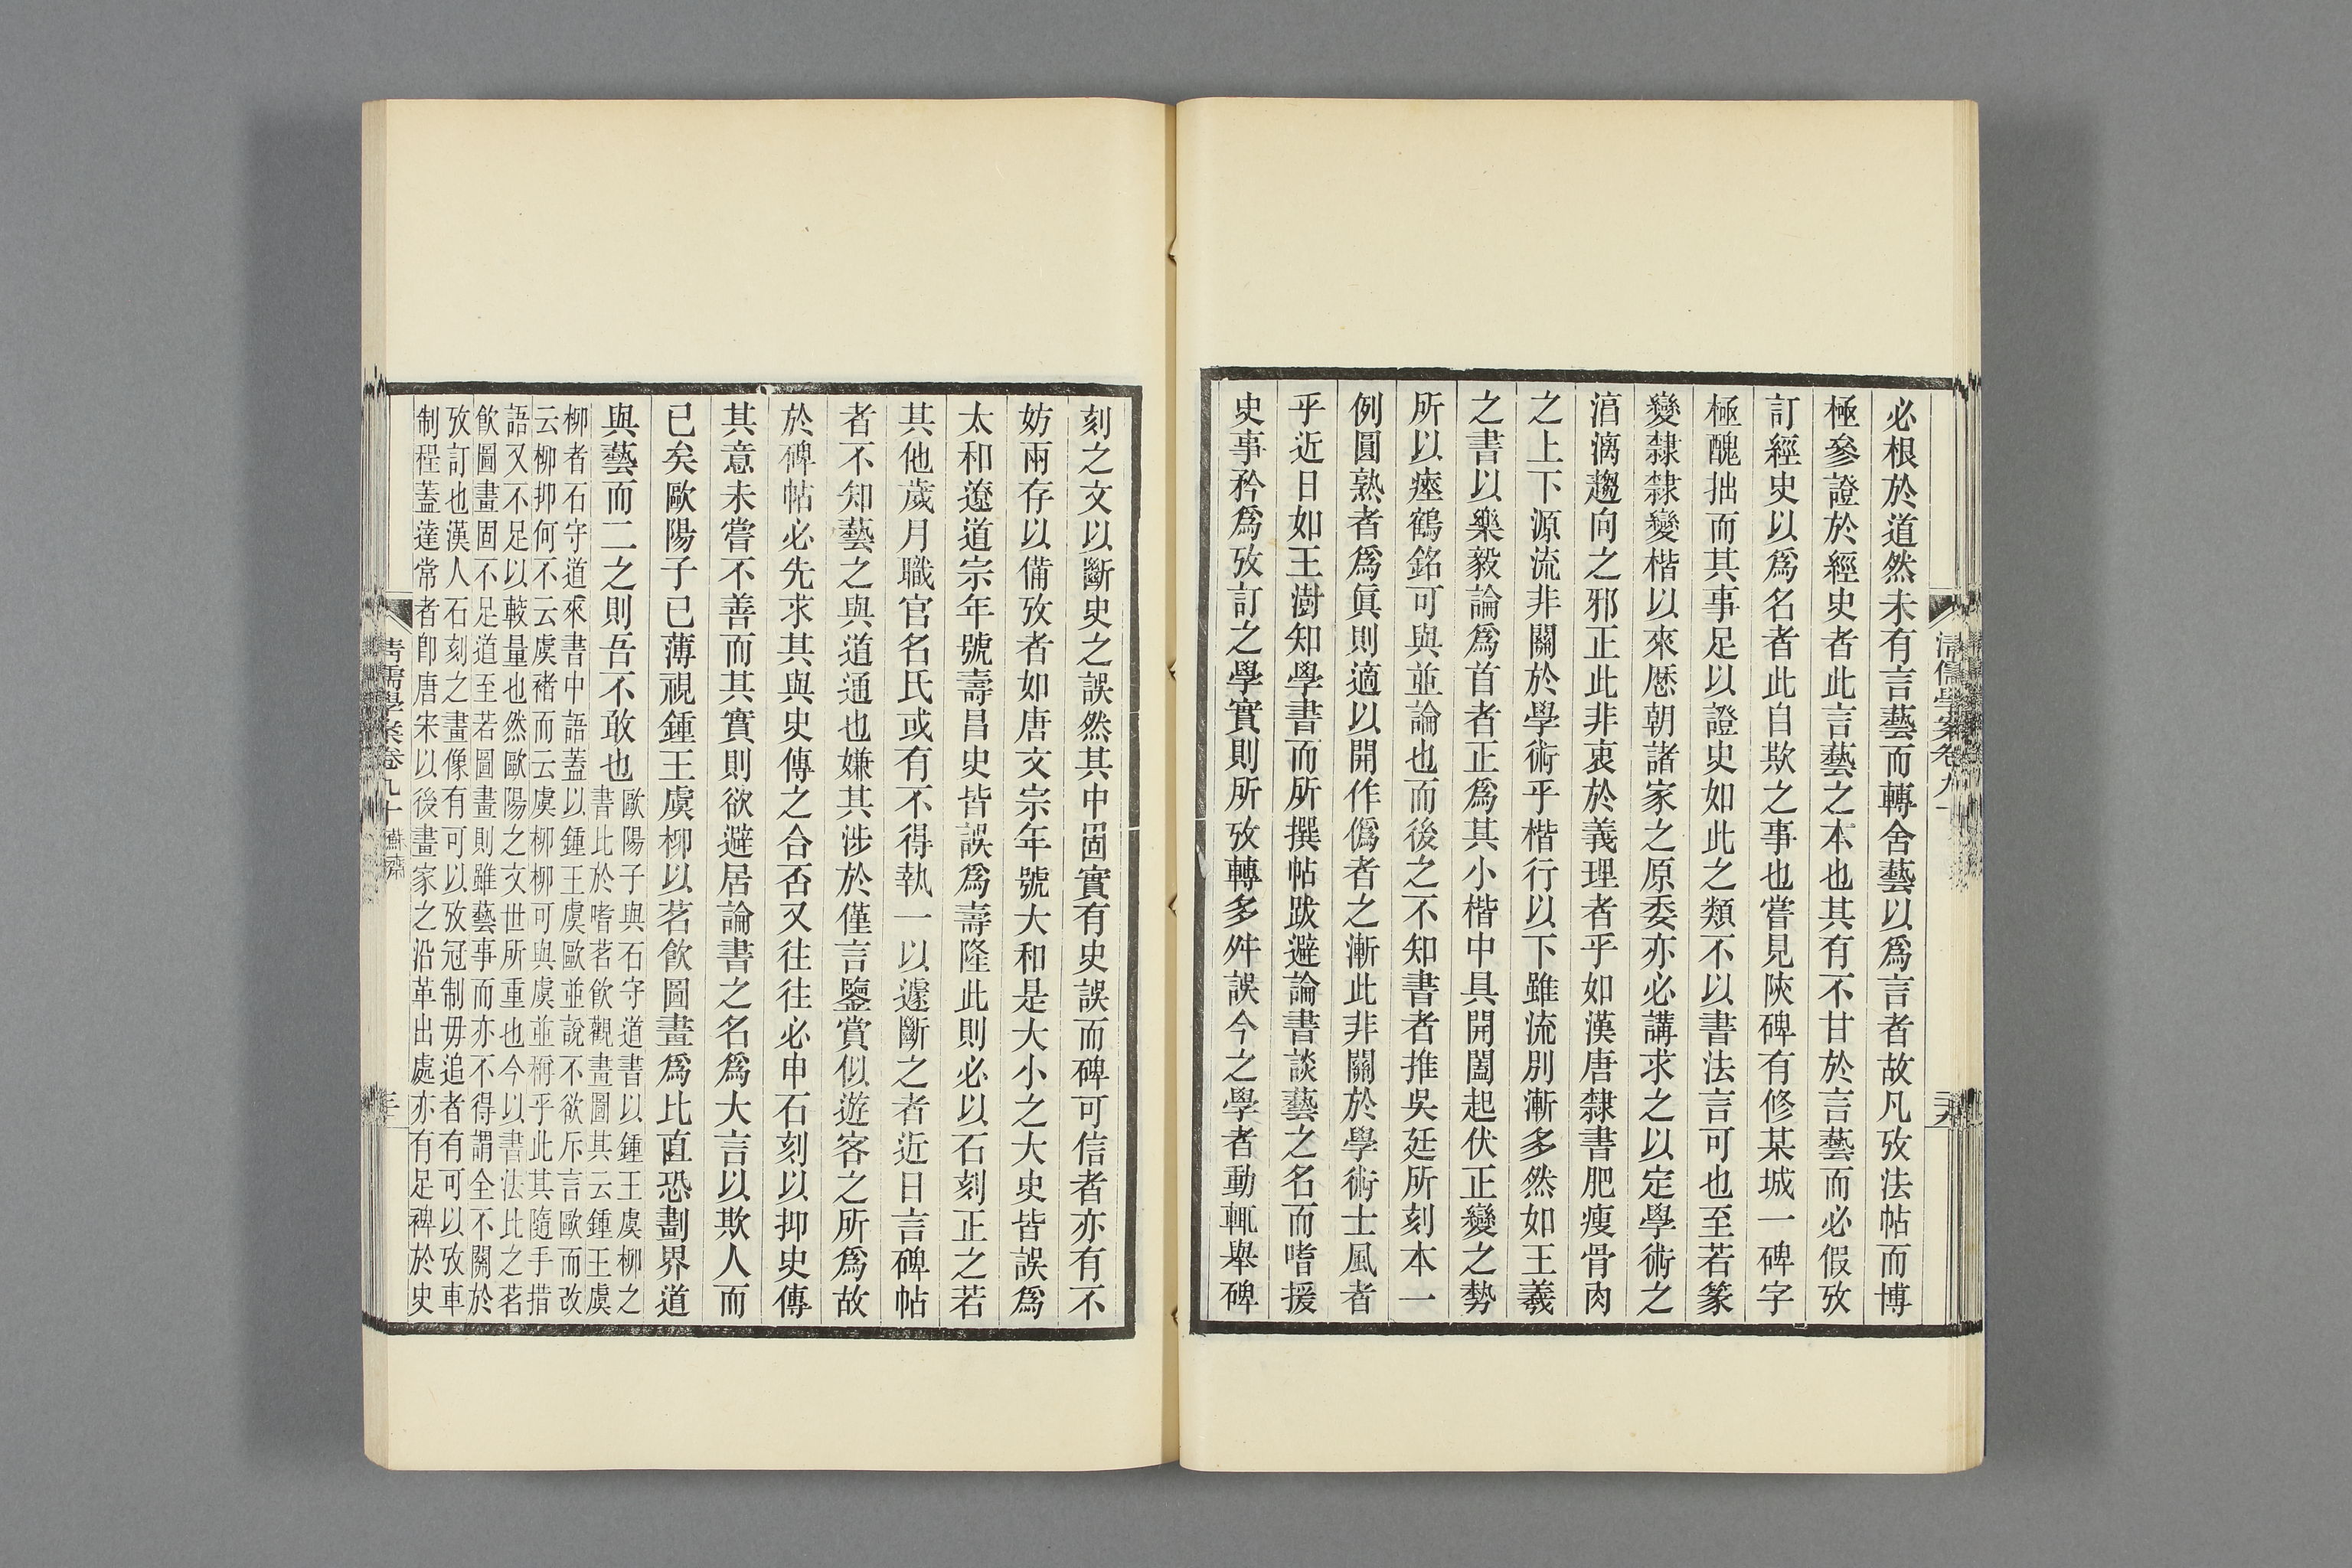 必根於道然未有言藝而轉舍藝以爲言者故凡攷法帖而博
極參證於經史者此言藝之本也其有不甘於言藝而必假攷
訂經史以爲名者此自欺之事也嘗見陝碑有修某城一碑字
極醜拙而其事足以證史如此之類不以書法言可也至若篆
變隸隸變楷以來歷朝諸家之原委亦必講求之以定學術之
淳漓趨向之邪正此非衷於義理者乎如漢唐隸書肥瘦骨肉
之上下源流非關於學術乎楷行以下雖流別漸多然如王羲
之書以樂毅論爲首者正爲其小楷中具開闔起伏正變之勢
所以瘞鶴銘可與並論也而後之不知書者推吳廷所刻本一
例圓熟者爲眞則適以開作僞者之漸此非關於學術士風者
乎近日如王澍知學書而所撰帖跋避論書談藝之名而嗜援
史事矜爲攷訂之學實則所攷轉多舛誤今之學者動輒舉碑
清儒學案卷九十
二九
刻之文以斷史之誤然其中固實有史誤而碑可信者亦有不
妨兩存以備攷者如唐文宗年號大和是大小之大史皆誤爲
太和遼道宗年號壽昌史皆誤爲壽隆此則必以石刻正之若
其他歲月職官名氏或有不得執一以遽斷之者近日言碑帖
者不知藝之與道通也嫌其涉於僅言鑒賞似遊客之所爲故
於碑帖必先求其與史傳之合否又往往必申石刻以抑史傳
其意未嘗不善而其實則欲避居論書之名爲大言以欺人而
已矣歐陽子已薄視鍾王虞柳以茗飮圖畫爲比直恐劃界道
與藝而二之則吾不敢也
歐陽子與石守道書以鍾王虞柳之
書比於嗜茗飮觀畫圖其云鍾王虞
柳者石守道來書中語蓋以鍾王虞歐並說不欲斥言歐而改
云柳抑何不云虞褚而云虞柳柳可與虞並稱乎此其隨手揩
語又不足以較量也然歐陽之文世所重也今以書法比之茗
飮圖畫固不足道至若圖畫則雖藝事而亦不得謂全不關於
攷訂也漢人石刻之畫像有可以攷冠制毋追者有可以攷車
制桯蓋達常者卽唐宋以後畫家之沿革出處亦有足裨於史
清儒學案卷九十 蘇齋
三十